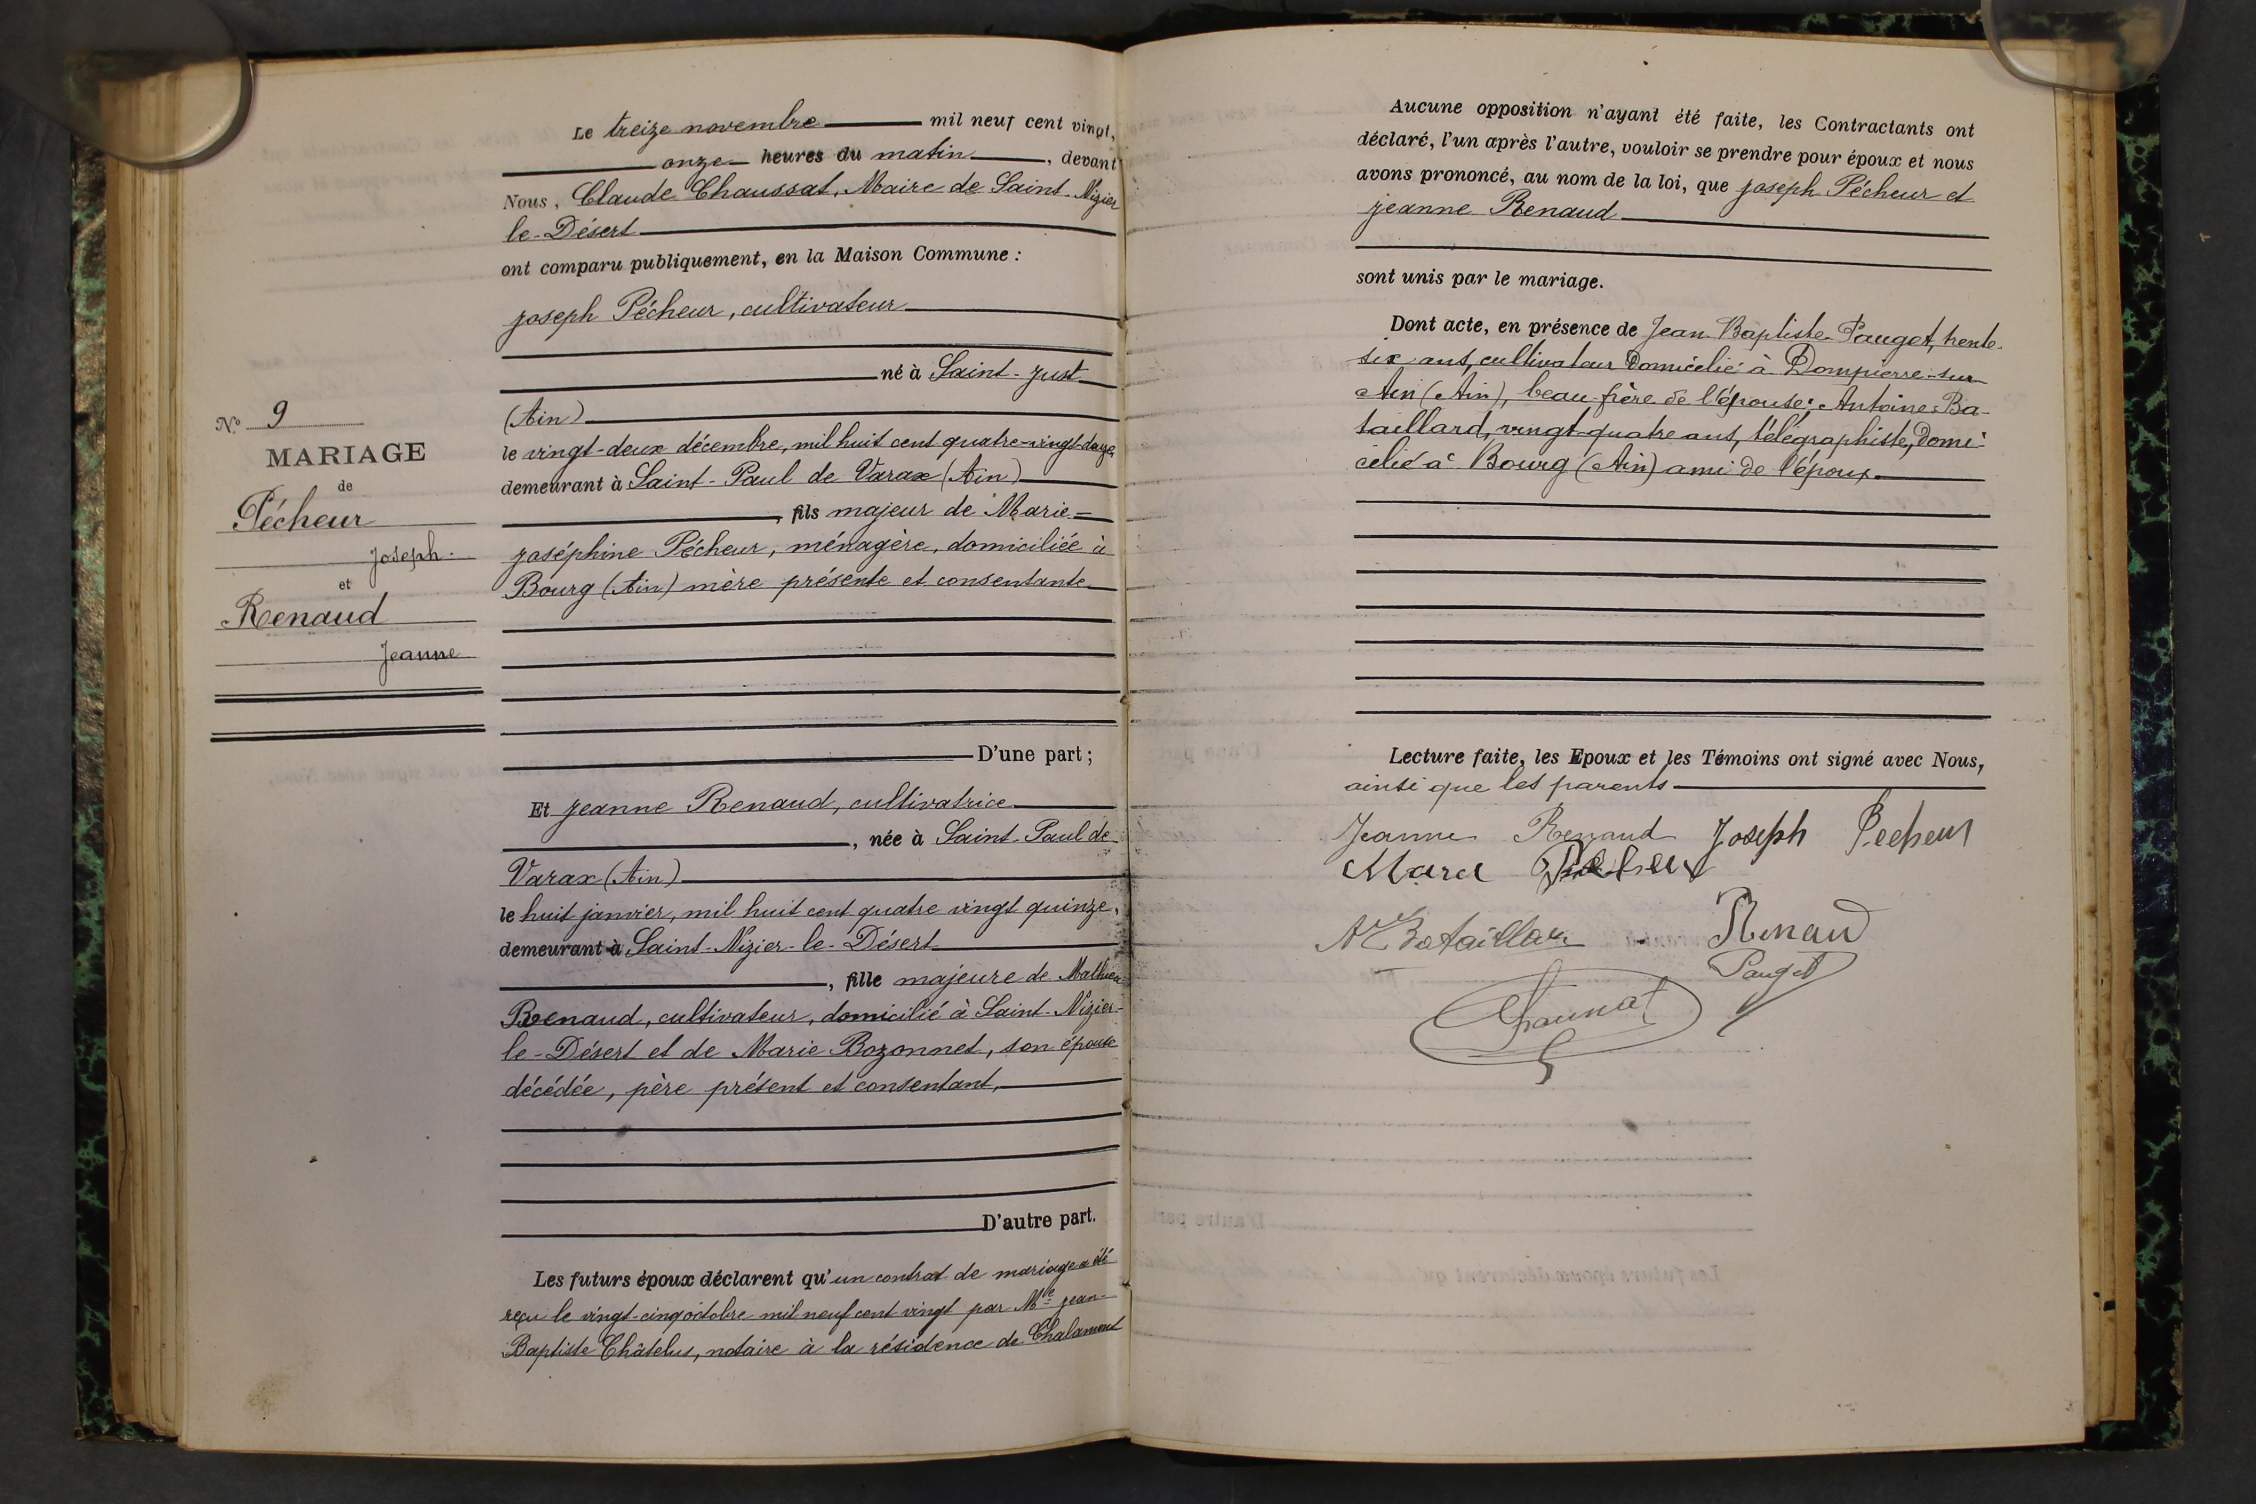 Le treize novembre mil neuf cent vingt,
onze heures du matin, devant
Nous, Claude Chaussat, Maire de Saint-Nizier
le-Désert
ont comparu publiquement, en la Maison Commune :
Joseph Pécheur, cultivateur
né à Saint-Just
(Ain)
le vingt-deux décembre, mil huit cent quatre-vingt-douze,
demeurant à Saint-Paul de Varax (Ain)
, fils majeur de Marie=
Joséphine Pécheur, ménagère, domiciliée à
Bourg (Ain) mère présente et consentante
D'une part ;
Et Jeanne Renaud, cultivatrice
, née à Saint-Paul de
Varax (Ain)
le huit janvier, mil huit cent quatre vingt quinze,
demeurant à Saint-Nizier-le-Désert
, fille majeure de Mathieu
Renaud, cultivateur, domicilié à Saint-Nizier-
le-Désert et de Marie Bozonnet, son épouse
décédée, père présent et consentant,
D'autre part.
Les futurs époux déclarent qu'un contrat de mariage a été
reçu le vingt-cinq octobre mil neuf cent vingt par Me Jean-
Baptiste Châtelus, notaire à la résidence de Chalamont
No 9
MARIAGE
de
Pécheur
Joseph.
et
Renaud
Jeanne
Aucune opposition n'ayant été faite, les Contractants ont
déclaré, l'un après l'autre, vouloir se prendre pour époux et nous
avons prononcé, au nom de la loi, que Joseph Pécheur et
Jeanne Renaud
sont unis par le mariage.
Dont acte, en présence de Jean Baptiste Pauget, trente-
six ans, cultivateur Domicilié à Dompierre-sur
Ain (Ain), beau-frère de l'épouse; Antoine Ba-
taillard, vingt-quatre ans, télégraphiste, Domi-
cilié à Bourg (Ain) ami de l'époux.
Lecture faite, les Epoux et les Témoins ont signé avec Nous,
ainsi que les parents
Jeanne Renaud Joseph Pecheur
Renaud
Pauget